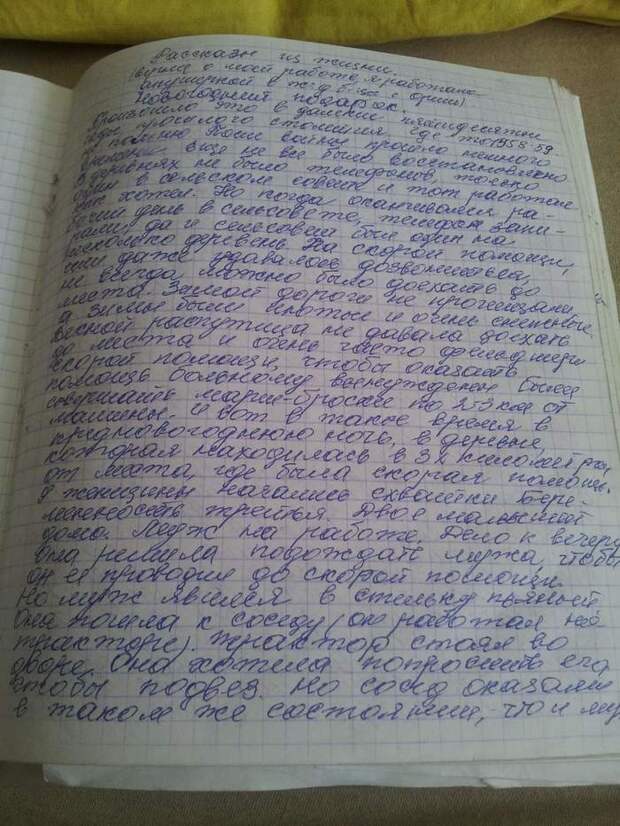 Рассказы из жизни.
работе, я работала
акушеркой в ж-д б-це
Новогодний подарок.
Произошло это в далёкие пятидесятые
годы прошлого столетия, где то 1958-59
После войны прошло немного
времени. Еще не все было восстановлено
В деревнях не было телефонов, только
один в сельском совете и тот работал
как хотел. Но когда оканчивался ра-
бочий день в сельсовете, телефон запи-
рали, да и сельсовет был один на
несколько деревень. На скорой помощи,
если даже удавалось дозвониться,
не всегда можно было доехать до
места. Зимой дороги не прочищали
а зимы были и очень снежные.
Весной распутица не давала доехать
до места и очень часто фельдшера
скорой помощи, чтобы оказать
помощь больному вынуждены были
совершать марш-броски по 2-3 км от
машины. И вот в такое время в
предновогоднюю ночь, в деревне,
которая находилась в 3х километрах
от места, где была скорая помощь,
у женщины начались схватки. Бере-
менность третья. Двое малышей
дома. Муж на работе. Дело к вечеру
Она решила подождать мужа, чтобы
он её проводил до скорой помощи.
Но муж явился в стельку пьяный
Она пошла к соседу (он работал на
тракторе). Трактор стоял во
дворе. Она хотела попросить его
чтобы подвез. Но сосед оказался
в таком же состоянии, что и му